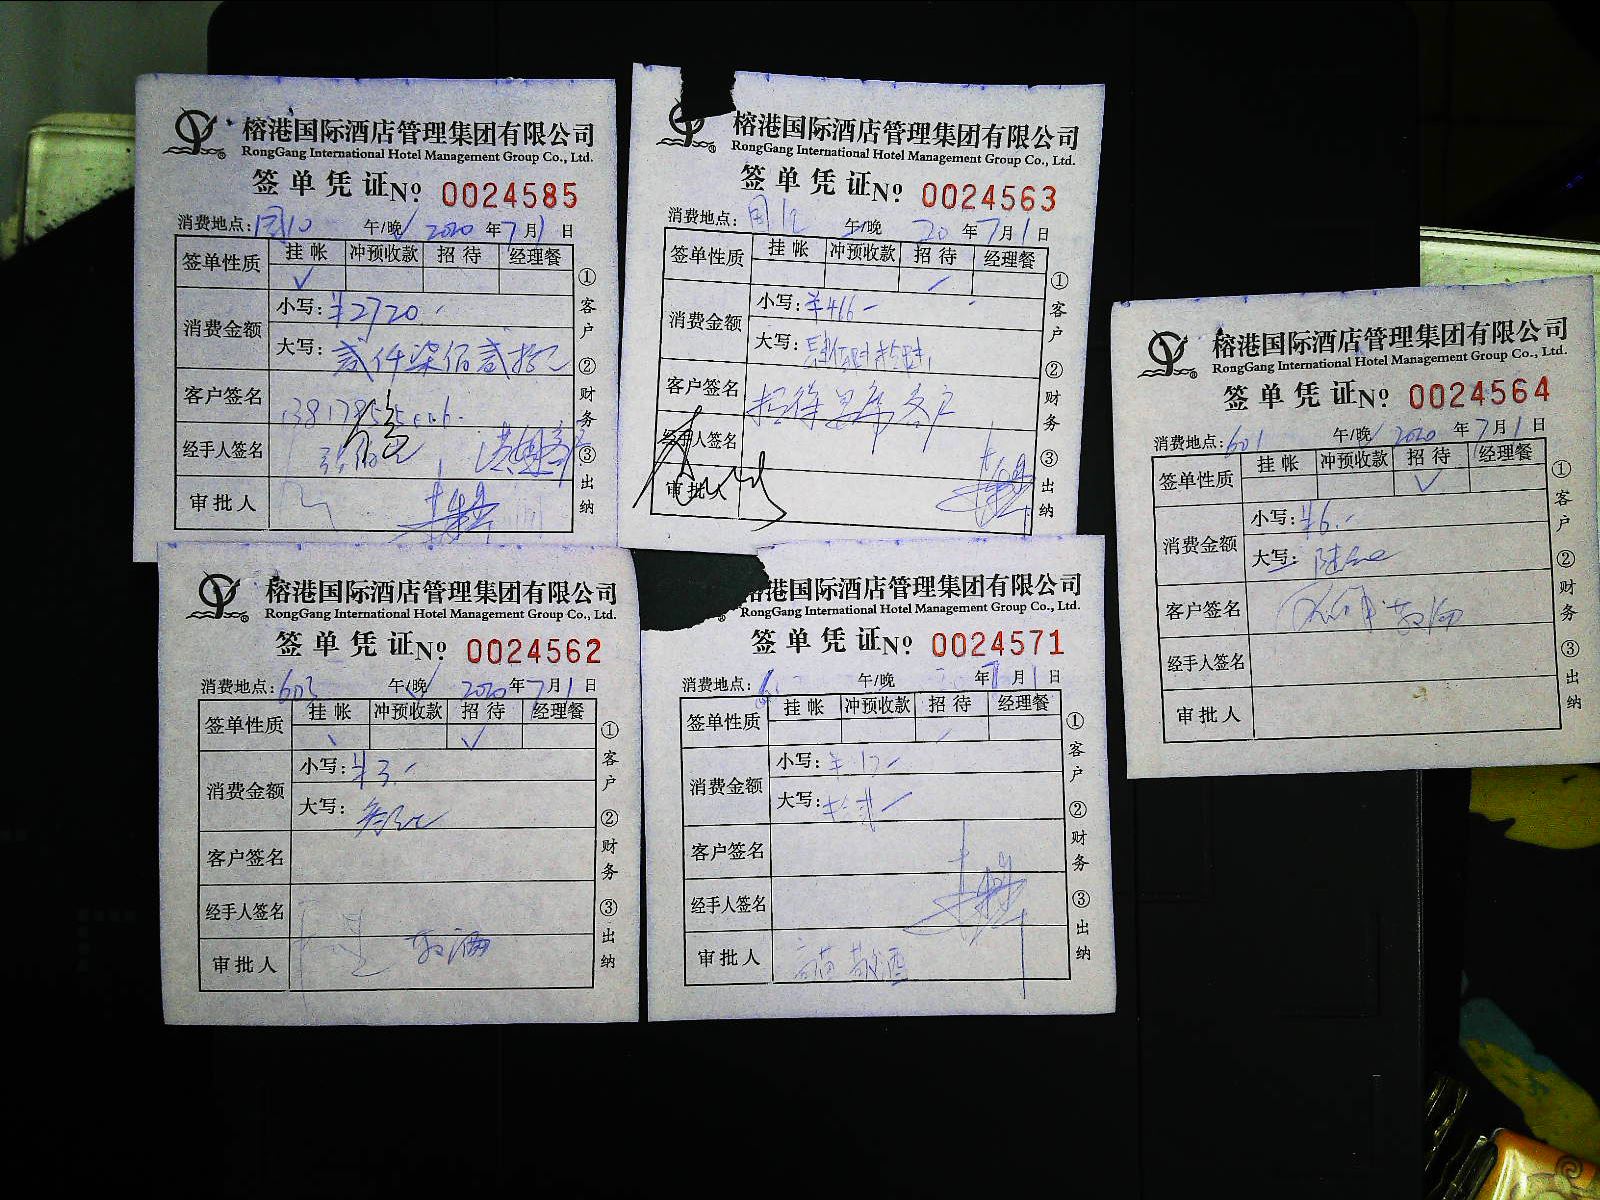 榕港国际酒店管理集团有限公司
RongGang International Hotel Management Group Co., Ltd.
签单凭证 Nº 0024585
消费地点: 午/晚 2020 年 7 月 1 日
签单性质 挂帐 冲预收款 招待 经理餐
消费金额
小写: ¥2720.
大写: 贰仟柒佰贰拾元
客户签名
经手人签名
审批人
①客户 ②财务 ③出纳
榕港国际酒店管理集团有限公司
RongGang International Hotel Management Group Co., Ltd.
签单凭证 Nº 0024563
消费地点: 午/晚 20 年 7 月 1 日
签单性质 挂帐 冲预收款 招待 经理餐
消费金额
小写: ¥466-
大写:
客户签名 招待 客户
经手人签名
审批人
①客户 ②财务 ③出纳
榕港国际酒店管理集团有限公司
RongGang International Hotel Management Group Co., Ltd.
签单凭证 Nº 0024564
消费地点: 601 午/晚 2020 年 7 月 1 日
签单性质 挂帐 冲预收款 招待 经理餐
消费金额
小写: ¥6.-
大写: 陆元
客户签名 敬酒
经手人签名
审批人
①客户 ②财务 ③出纳
榕港国际酒店管理集团有限公司
RongGang International Hotel Management Group Co., Ltd.
签单凭证 Nº 0024562
消费地点: 603 午/晚 2020 年 7 月 1 日
签单性质 挂帐 冲预收款 招待 经理餐
消费金额
小写: ¥3.-
大写: 叁元
客户签名
经手人签名
审批人 敬酒
①客户 ②财务 ③出纳
榕港国际酒店管理集团有限公司
RongGang International Hotel Management Group Co., Ltd.
签单凭证 Nº 0024571
消费地点: 午/晚 年 7 月 1 日
签单性质 挂帐 冲预收款 招待 经理餐
消费金额
小写: ¥12-
大写: 拾贰
客户签名
经手人签名
审批人 敬酒
①客户 ②财务 ③出纳